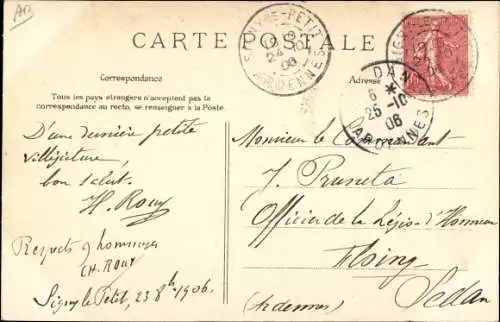 AB
CARTE POSTALE
SIGNY-LE-PETIT
24 10
06
ARDENNES
Correspondance
Tous les pays étrangers n'acceptent pas la
correspondance au recto, se renseigner à la Poste.
D'une dernière petite
villégiature,
bon salut.
H. Roux
Respects & hommages
CH. ROUX
Signy le Petit, 23 8bre 1906.
Adresse
SEDAN
6
25-10
06
ARDENNES
Monsieur le Commandant
J. Pruneta
Officier de la Légion d'Honneur
Floing
Sedan
(Ardennes)